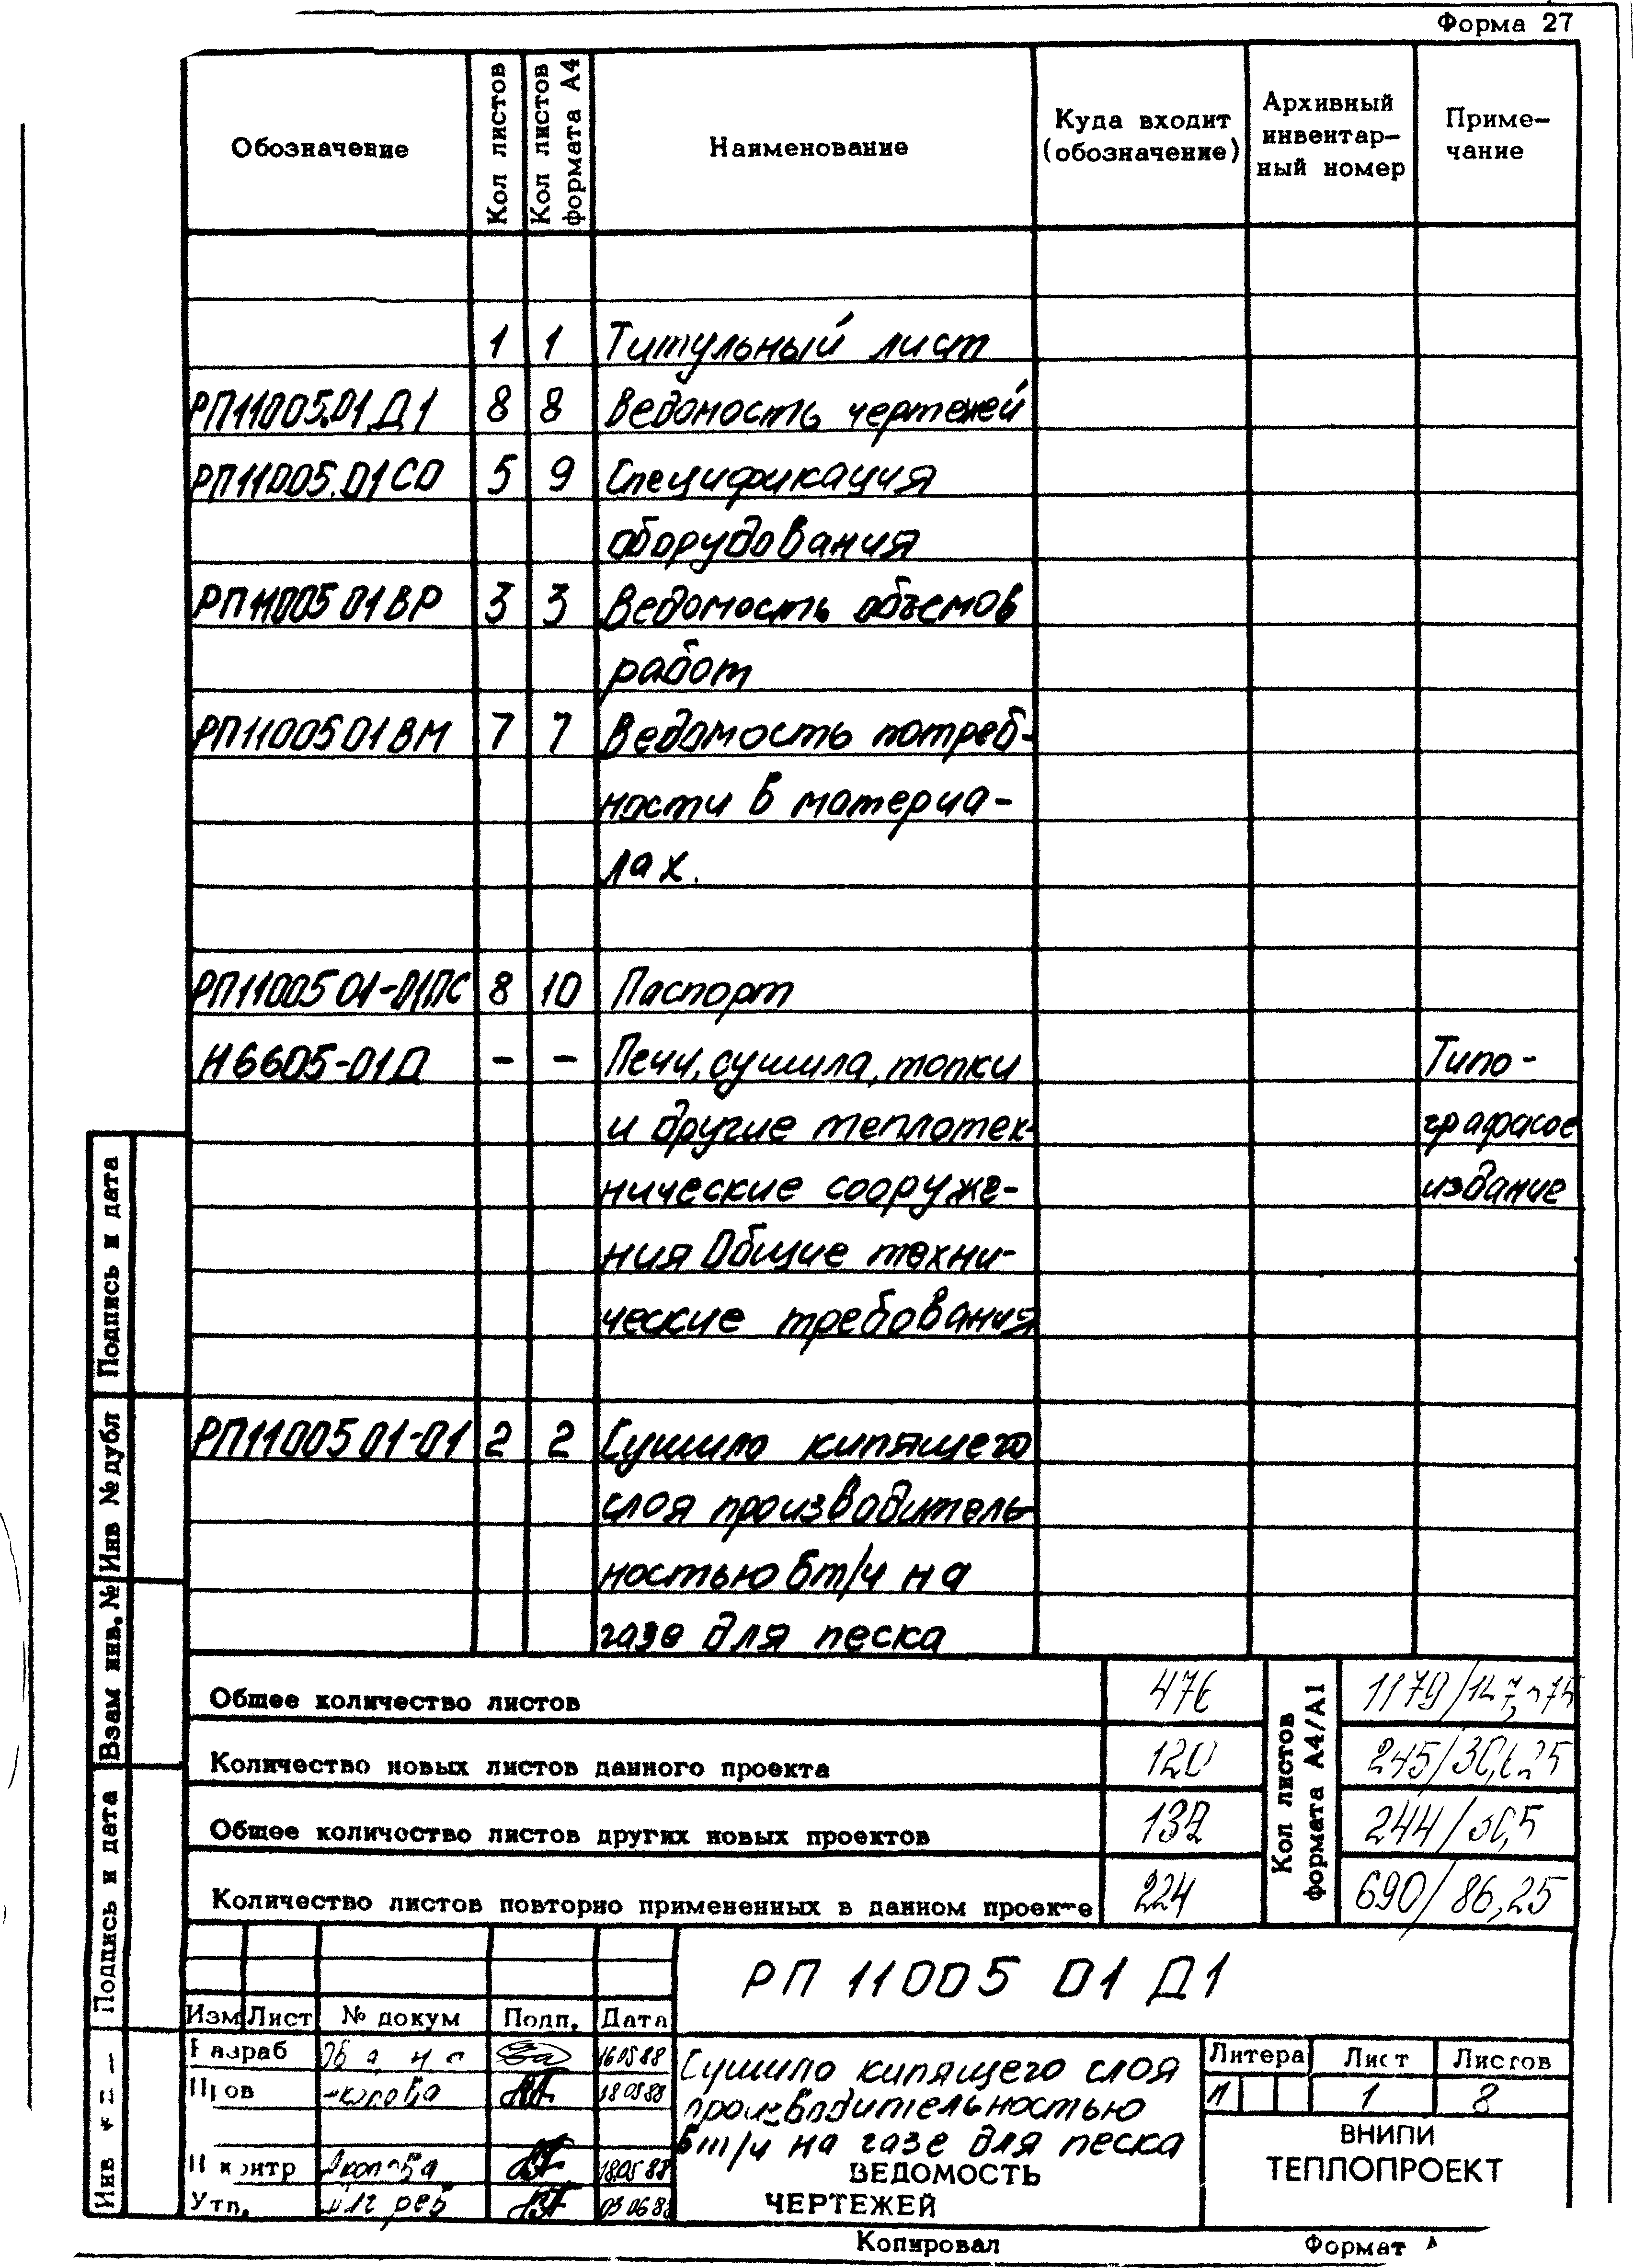 Форма 27
Обозначение
Кол листов
Кол листов формата А4
Наименование
Куда входит (обозначение)
Архивный инвентар- ный номер
Приме- чание
1 1 Титульный лист
РП11005.01.Д1 8 8 Ведомость чертежей
РП11005.01СО 5 9 Спецификация
оборудования
РП11005 01ВР 3 3 Ведомость объемов
работ
РП11005 01ВМ 7 7 Ведомость потреб-
ности в материа-
лах.
РП11005 01-01ПС 8 10 Паспорт
Н6605-01Д - - Печи, сушила, топки Типо-
и другие теплотех-
нические сооруже- издание
ния Общие техни-
ческие требования
РП11005 01-01 2 2 Сушило кипящего
слоя производитель-
ностью 6т/ч на
газе для песка
Общее количество листов 476 1179/
Количество новых листов данного проекта 120 245/
Общее количество листов других новых проектов 132 244/
Количество листов повторно примененных в данном проекте 224 690/86,25
Кол листов формата А4/А1
РП 11005 01 Д1
Изм Лист № докум Подп. Дата
Разраб 16 05 88
Пров 18 05 88
Н контр 18 05 88
Утв. 03 06 88
Сушило кипящего слоя
производительностью
6т/ч на газе для песка
ВЕДОМОСТЬ
ЧЕРТЕЖЕЙ
Литера Лист Листов
1 8
ВНИПИ
ТЕПЛОПРОЕКТ
Подпись и дата
Инв № дубл
Взам инв. №
Подпись и дата
Инв
Копировал Формат